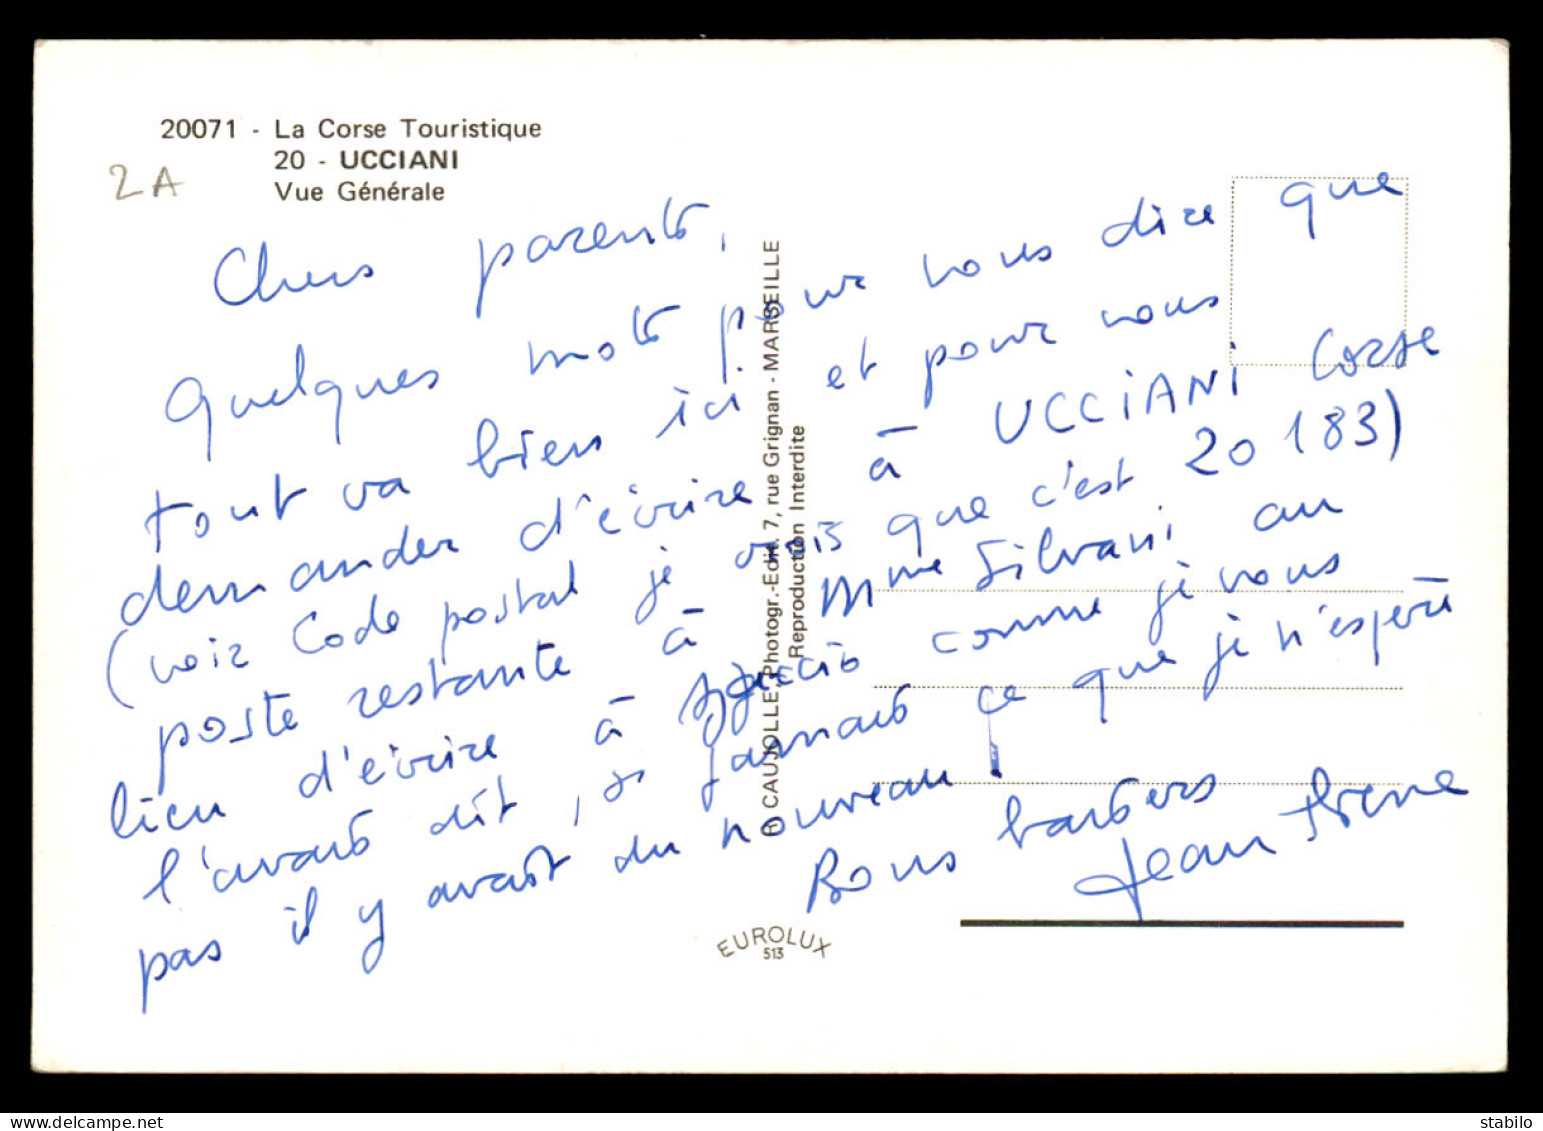 20071 - La Corse Touristique
20 - UCCIANI
Vue Générale
2A
Chers parents,
Quelques mots pour vous dire que
tout va bien ici et pour vous
demander d'écrire à UCCIANI Corse
(voir Code postal je crois que c'est 20 183)
poste restante à Mme Silvani au
lieu d'écrire à Ajaccio comme je vous
l'avais dit, si jamais ce que je n'espère
pas il y avait du nouveau !
Bons baisers
Jean
R. CAUJOLLE, Photogr.-Edit. 7, rue Grignan - MARSEILLE
Reproduction Interdite
EUROLUX
513
delcampe.net
stabilo